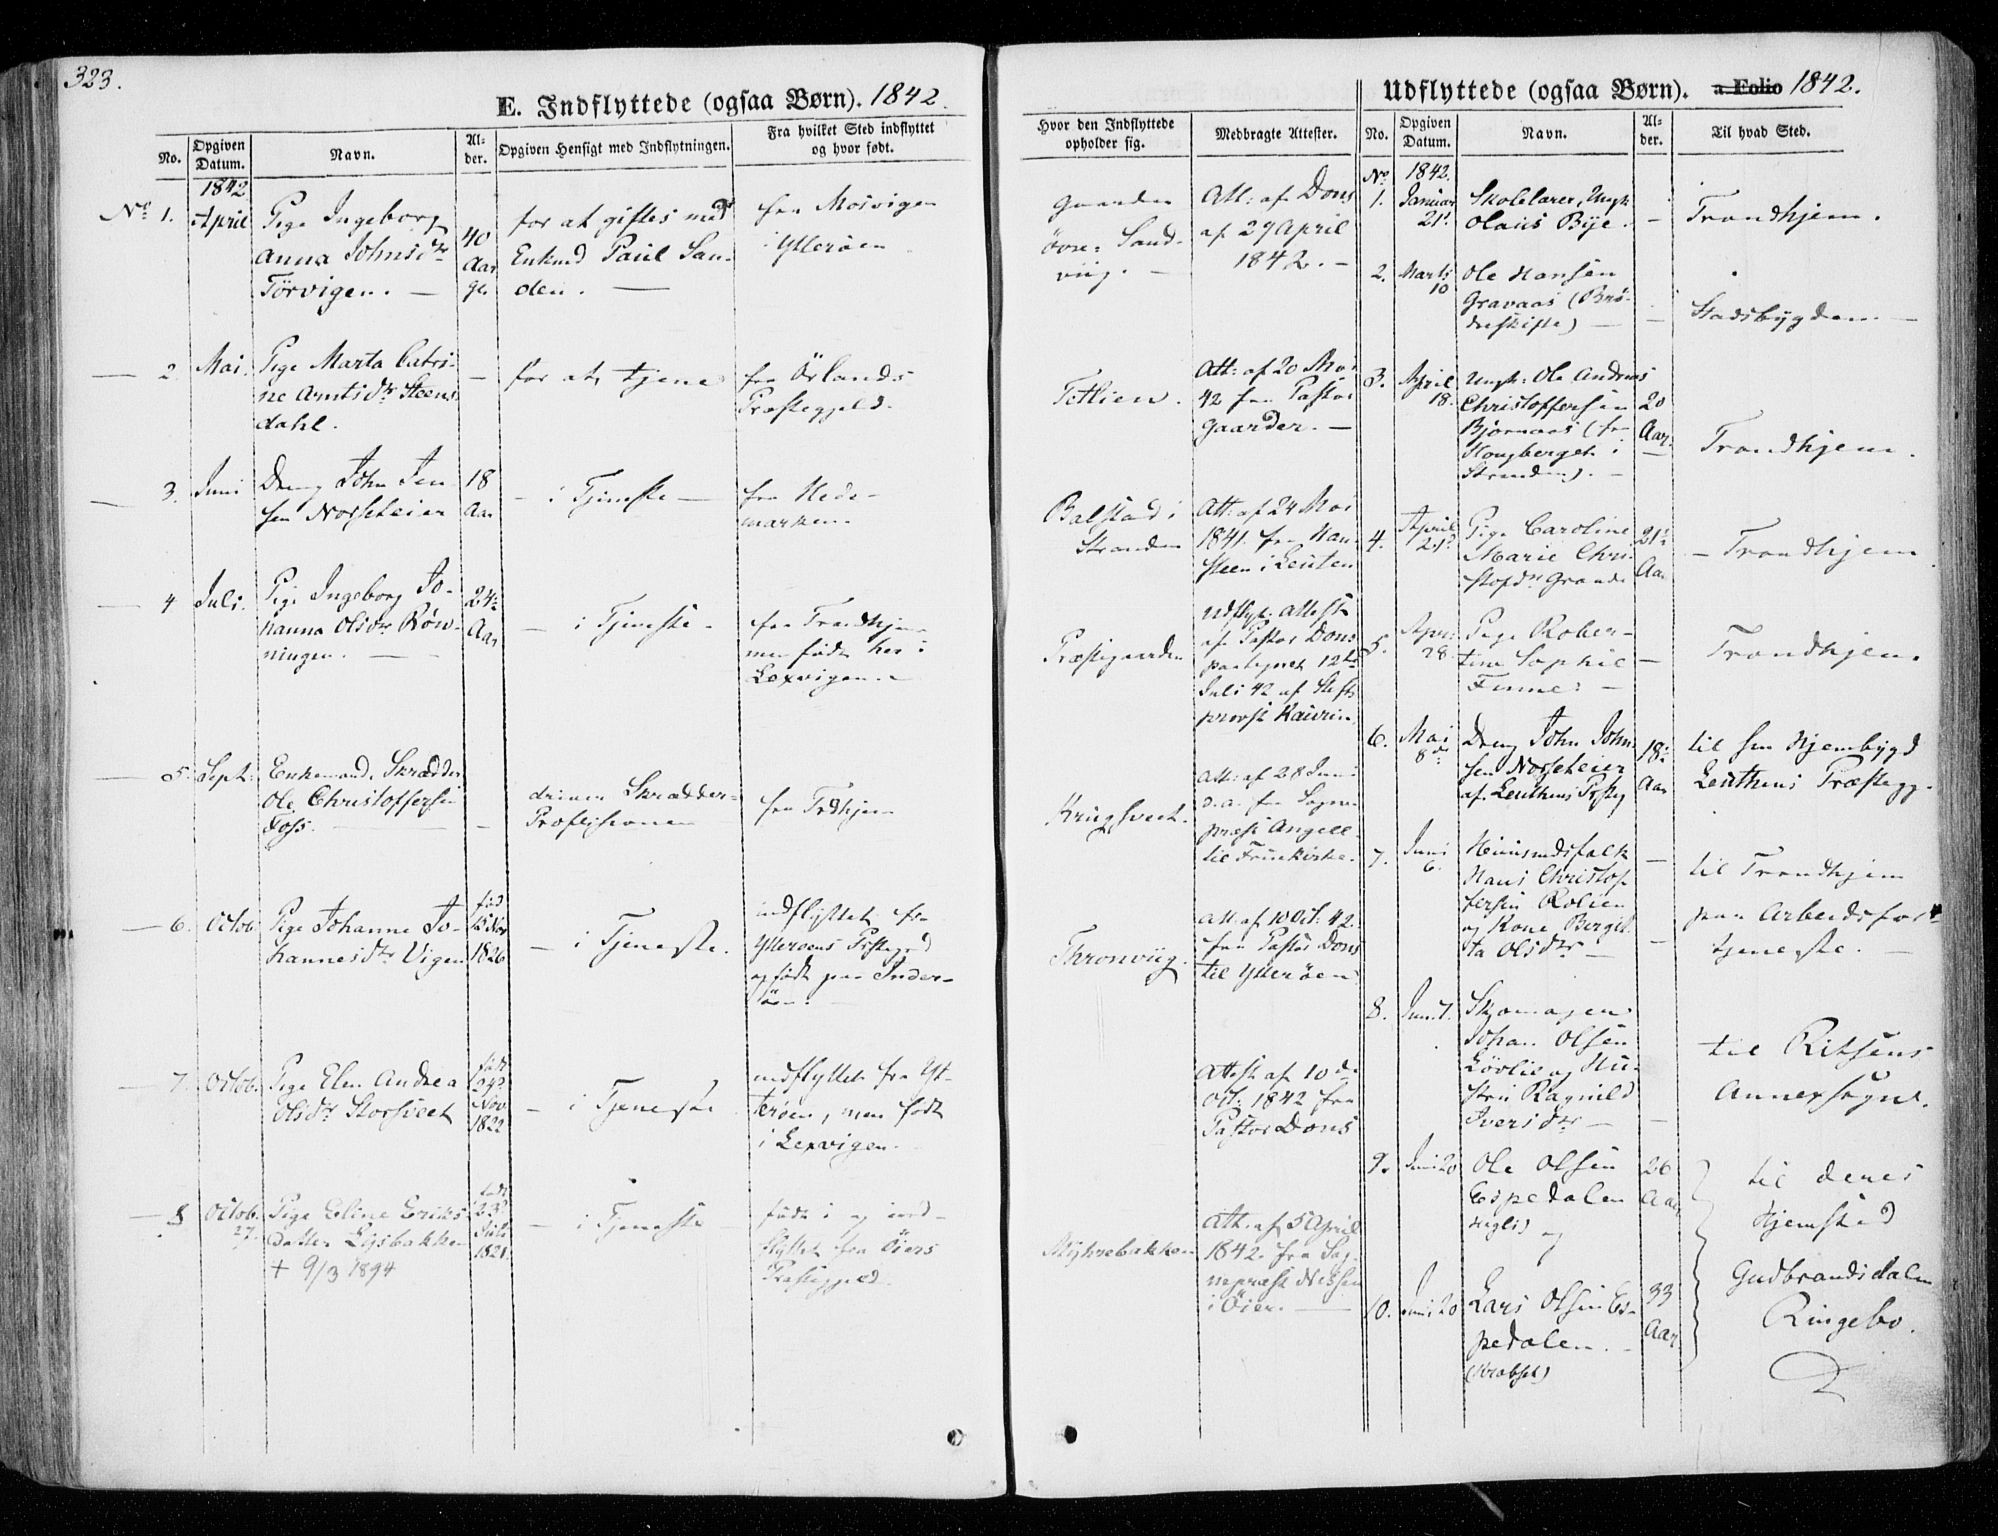 323.
E. Indflyttede (ogsaa Børn). 1842.
No.
Opgiven Datum.
Navn.
Al-
der.
Opgiven Hensigt med Indflytningen.
Fra hvilket Sted indflyttet
og hvor født.
Hvor den Indflyttede
opholder sig.
Medbragte Attester.
1842
No. 1.
April
Pige Ingeborg
Anna Johnsdtr
Törvigen. —
40
Aar
gl.
for at giftes med
Enkmd Paul San-
den. —
fra Mosvigen
i Ytterøen
Gaarden
øvre Sand-
viig. —
Att: af Dons
af 29 April
1842. —
2.
Mai.
Pige Marta Catri-
ne Arntsdtr Steens
dahl.
—
for at tjene
fra Örlands
Præstegjeld.
Tetlien.
Att: af 20 Mai
42 fra Pastor
Gaarder. —
3.
Juni
Dreng John Jen
sen Norseteier
18
Aar
— i Tjeneste —
fra Hede-
marken.
Balstad i
Stranden
Att: af 24 Mai
1841. fra Hau
steen i Leuten
4
Juli.
Pige Ingeborg Jo-
hanna Olsdtr Rön-
ningen. —
24
Aar
— i Tjeneste -
fra Trondhjem
men født her i
Lexvigen. -
Præstegaarden
Udflyt: Attest
af Pastor Dons
paategnet 12te
Juli 42 af Stifts
provst Kaurin
5.
Sept:
Enkemand, Skrædder
Ole Christoffersen
Foss. —
—
driver Skrædder-
Professionen
fra Trdhjem
Kriigsveet.
Att: af 28 Juni
d. a. fra Sogne
præst Angell
til Fruekirke.
6.
Octob.
Pige Johanne Jo-
hannesdtr Vigen
fød
15 Nov
1826
— i Tjeneste.
indflyttet fra
Ytterøens Præstegjeld
og født paa Inder-
öen.
Thronviig.
Att: af 10 Oct: 42.
fra Pastor Dons
til Ytterøen
7.
Octob.
Pige Elen Andrea
Olsdtr Storsveet
født
24de
Nov.
1822
— i Tjeneste
indflyttet fra Yt-
terøen, men født
i Lexvigen.
Attest af 10de
Oct: 1842 fra
Pastor Dons
8
Octob.
27.
Pige Eline Eriks
datter Lysbakken
† 9/3 1894
født
23de
Juli
1821.
— i Tjeneste —
født i og ind-
flyttet fra Öiers
Præstegjeld.
Myhrebakken
Att: af 5 April
1842. fra Sog-
nepræst Nissen
i Öier. —
Udflyttede (ogsaa Børn). a. Folio 1842.
No.
Opgiven Datum.
Navn.
Al-
der.
Til hvad Sted.
No
1842.
1.
Januar
21.
Skolelærer, Ungk
Olaus Bye.
—
Trondhjem.
2.
Marts
10
Ole Hansen
Gravaas (Brö-
dreskifte) —
—
Stadsbygden —
3.
April
18.
Ungk: Ole Andreas
Christoffersen
Björnaas (fra
Hougberget i
Stranden). —
20
Aar.
Trondhjem.
4.
April
21de
Pige Caroline
Marie Chri-
stofdtr Grande
21
Aar
— Trondhjem
5.
April
28.
Pige Rober-
tine Sophie
Finne —
—
Trondhjem.
6.
Mai
8de
Dreng John John
sen Norseteier
af Leuthens Prstgj
18
Aar
til sin Hjembygd
Leuthens Præstegj.
7.
Juni
6.
Huusmdsfolk
Hans Christof
fersen Rolien
og Kone Bergit
ta Olsdtr —
—
—
til Trondhjem
paa Arbeidsfor-
tjeneste. —
8.
Juni 7.
Skomager
Johan Olsen
Lövlie og Hu-
stru Ragnild
Iversdtr —
—
til Ritsens
Annexsogn.
9.
Juni 20
Ole Olsen
Espedalen
og
26
Aar
10.
Juni 20
Lars Olsen Es-
pedalen. -
33
Aar
til deres
Hjemsted
Gudbrandsdalen
Ringebo.